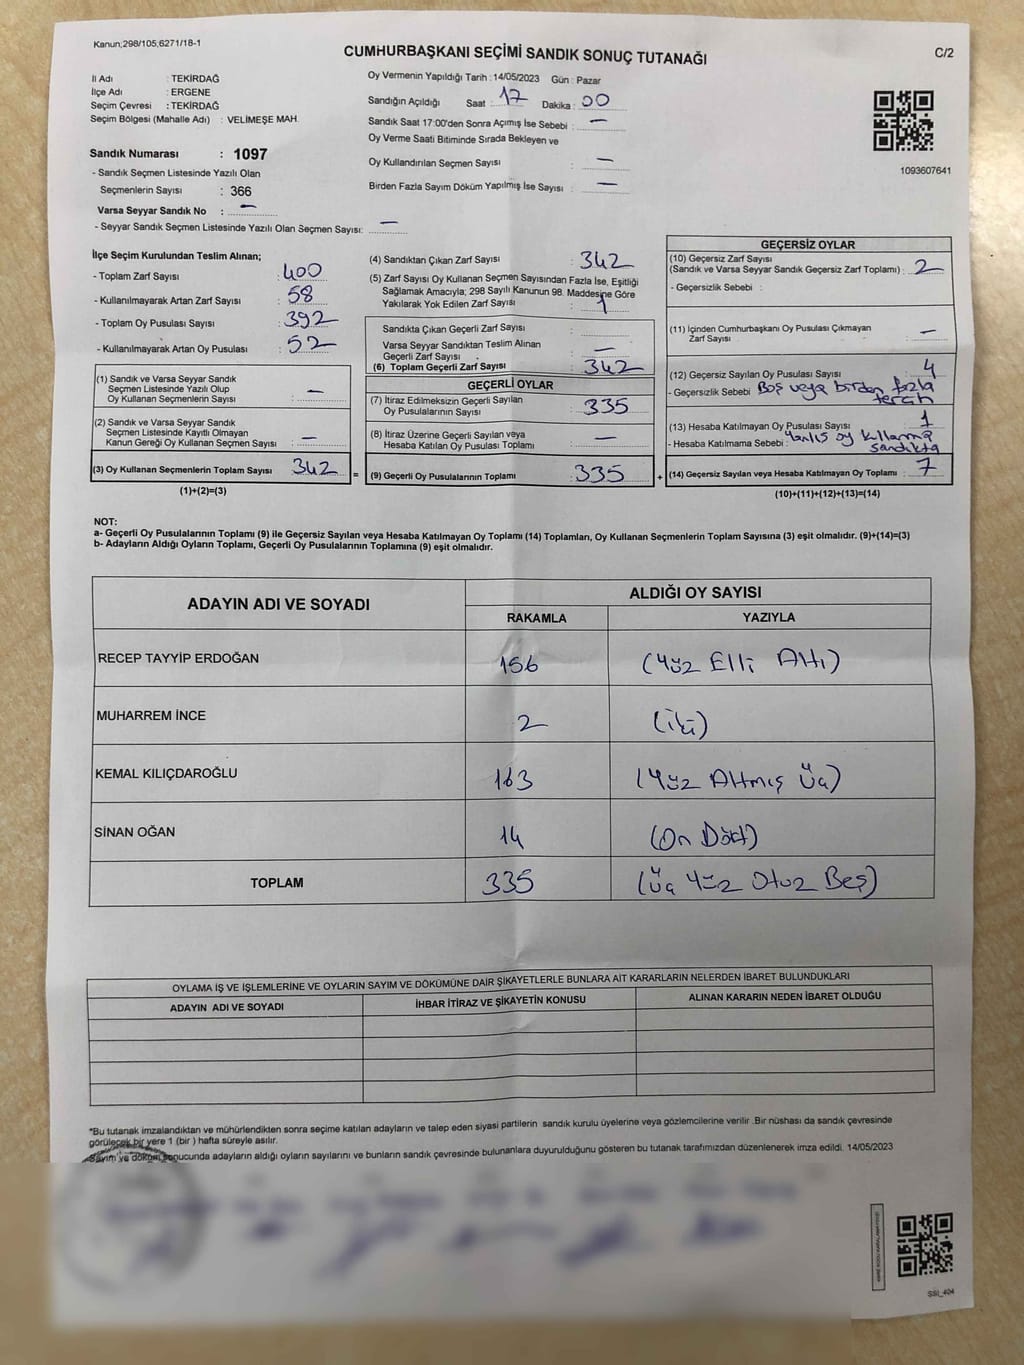 Kanun;298/105;6271/18-1
CUMHURBAŞKANI SEÇİMİ SANDIK SONUÇ TUTANAĞI
C/2
İl Adı : TEKİRDAĞ
İlçe Adı : ERGENE
Seçim Çevresi : TEKİRDAĞ
Seçim Bölgesi (Mahalle Adı) : VELİMEŞE MAH.
Sandık Numarası : 1097
- Sandık Seçmen Listesinde Yazılı Olan
Seçmenlerin Sayısı : 366
Varsa Seyyar Sandık No : —
- Seyyar Sandık Seçmen Listesinde Yazılı Olan Seçmen Sayısı: —
Oy Vermenin Yapıldığı Tarih : 14/05/2023 Gün : Pazar
Sandığın Açıldığı Saat : 17 Dakika : 00
Sandık Saat 17:00'den Sonra Açımış İse Sebebi : —
Oy Verme Saati Bitiminde Sırada Bekleyen ve
Oy Kullandırılan Seçmen Sayısı : —
Birden Fazla Sayım Döküm Yapılmış İse Sayısı : —
1093607641
İlçe Seçim Kurulundan Teslim Alınan;
- Toplam Zarf Sayısı : 400
- Kullanılmayarak Artan Zarf Sayısı : 58
- Toplam Oy Pusulası Sayısı : 392
- Kullanılmayarak Artan Oy Pusulası : 52
(1) Sandık ve Varsa Seyyar Sandık
Seçmen Listesinde Yazılı Olup
Oy Kullanan Seçmenlerin Sayısı : —
(2) Sandık ve Varsa Seyyar Sandık
Seçmen Listesinde Kayıtlı Olmayan
Kanun Gereği Oy Kullanan Seçmen Sayısı : —
(3) Oy Kullanan Seçmenlerin Toplam Sayısı 342
(1)+(2)=(3)
=
(4) Sandıktan Çıkan Zarf Sayısı : 342
(5) Zarf Sayısı Oy Kullanan Seçmen Sayısından Fazla İse, Eşitliği
Sağlamak Amacıyla; 298 Sayılı Kanunun 98. Maddesine Göre
Yakılarak Yok Edilen Zarf Sayısı : 1
Sandıkta Çıkan Geçerli Zarf Sayısı :
Varsa Seyyar Sandıktan Teslim Alınan
Geçerli Zarf Sayısı : —
(6) Toplam Geçerli Zarf Sayısı : 342
GEÇERLİ OYLAR
(7) İtiraz Edilmeksizin Geçerli Sayılan
Oy Pusulalarının Sayısı : 335
(8) İtiraz Üzerine Geçerli Sayılan veya
Hesaba Katılan Oy Pusulası Toplamı : —
(9) Geçerli Oy Pusulalarının Toplamı : 335
+
GEÇERSİZ OYLAR
(10) Geçersiz Zarf Sayısı
(Sandık ve Varsa Seyyar Sandık Geçersiz Zarf Toplamı) : 2
- Geçersizlik Sebebi :
(11) İçinden Cumhurbaşkanı Oy Pusulası Çıkmayan
Zarf Sayısı : —
(12) Geçersiz Sayılan Oy Pusulası Sayısı : 4
- Geçersizlik Sebebi Boş veya birden fazla
tercih
(13) Hesaba Katılmayan Oy Pusulası Sayısı : 1
- Hesaba Katılmama Sebebi : Yanlış oy kullanma
sandıkta
(14) Geçersiz Sayılan veya Hesaba Katılmayan Oy Toplamı : 7
(10)+(11)+(12)+(13)=(14)
NOT:
a- Geçerli Oy Pusulalarının Toplamı (9) ile Geçersiz Sayılan veya Hesaba Katılmayan Oy Toplamı (14) Toplamları, Oy Kullanan Seçmenlerin Toplam Sayısına (3) eşit olmalıdır. (9)+(14)=(3)
b- Adayların Aldığı Oyların Toplamı, Geçerli Oy Pusulalarının Toplamına (9) eşit olmalıdır.
ADAYIN ADI VE SOYADI
ALDIĞI OY SAYISI
RAKAMLA YAZIYLA
RECEP TAYYİP ERDOĞAN 156 (Yüz Elli Altı)
MUHARREM İNCE 2 (İki)
KEMAL KILIÇDAROĞLU 163 (Yüz Altmış Üç)
SİNAN OĞAN 14 (On Dört)
TOPLAM 335 (Üç Yüz Otuz Beş)
OYLAMA İŞ VE İŞLEMLERİNE VE OYLARIN SAYIM VE DÖKÜMÜNE DAİR ŞİKAYETLERLE BUNLARA AİT KARARLARIN NELERDEN İBARET BULUNDUKLARI
ADAYIN ADI VE SOYADI İHBAR İTİRAZ VE ŞİKAYETİN KONUSU ALINAN KARARIN NEDEN İBARET OLDUĞU
*Bu tutanak imzalandıktan ve mühürlendikten sonra seçime katılan adayların ve talep eden siyasi partilerin sandık kurulu üyelerine veya gözlemcilerine verilir .Bir nüshası da sandık çevresinde
görülecek bir yere 1 (bir ) hafta süreyle asılır.
Sayım ve döküm sonucunda adayların aldığı oyların sayılarını ve bunların sandık çevresinde bulunanlara duyurulduğunu gösteren bu tutanak tarafımızdan düzenlenerek imza edildi. 14/05/2023
SSI_404